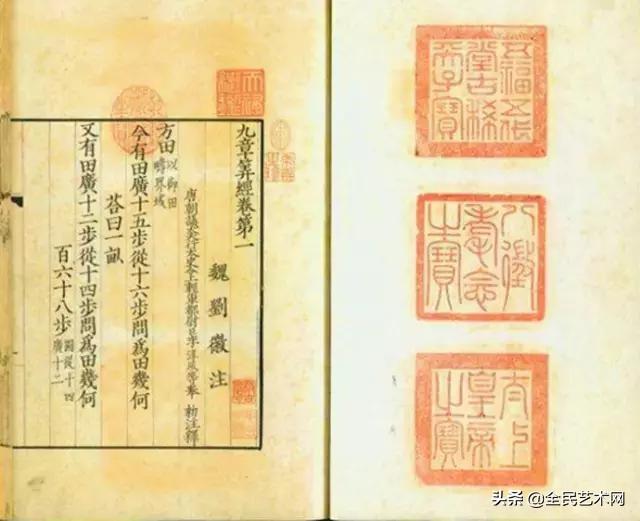 五福五代
堂古稀
天子寶
八徵
耄念
之寶
太上
皇帝
之寶
九章筭經卷第一
魏劉徽注
唐朝議大夫行太史令上輕車都尉臣李淳風等奉 勑注釋
方田以御田疇界域
今有田廣十五步從十六步問爲田幾何
荅曰一畝
又有田廣十二步從十四步問爲田幾何
百六十八步圖從十四廣十二
头条 @全民艺术网